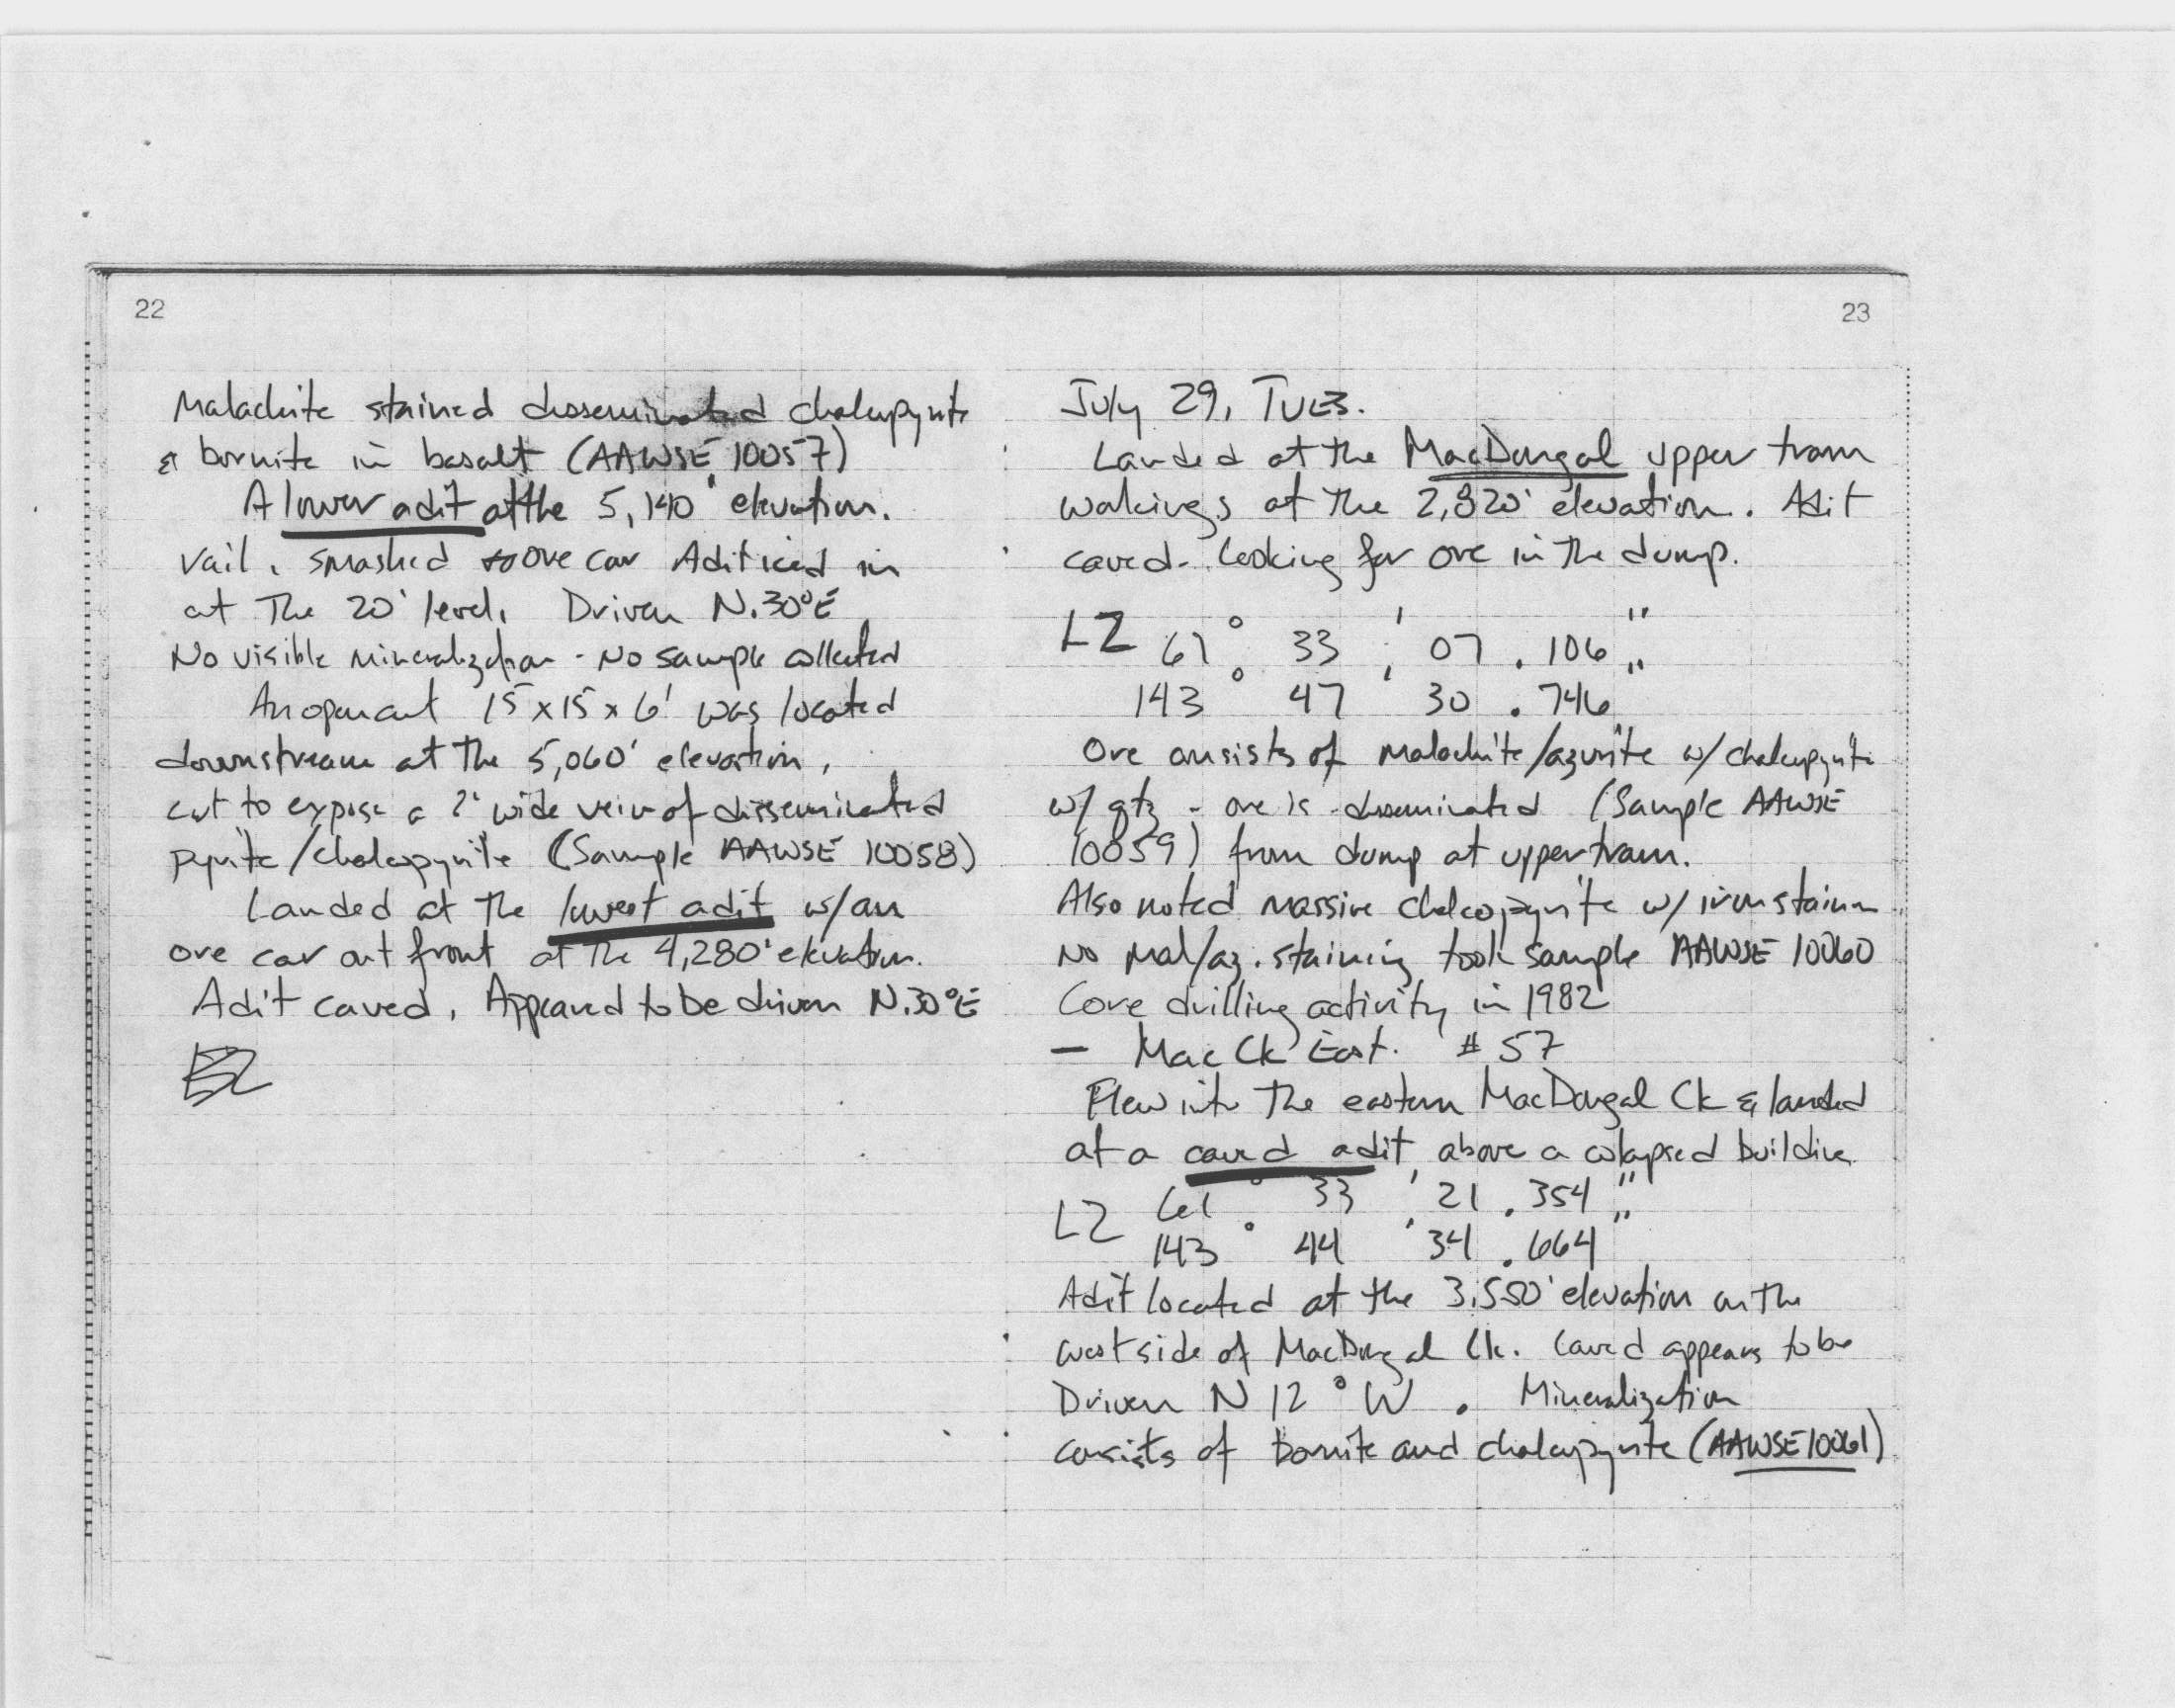 22
Malachite stained disseminated chalcopyrite
& bornite in basalt (AAWSE 10057)
A lower adit at the 5,140' elevation.
rail, smashed ore car Adit iced in
at the 20' level. Driven N.30°E
No visible mineralization - No sample collected
An open cut 15 x 15 x 6' was located
downstream at the 5,060' elevation,
cut to expose a 2' wide vein of disseminated
pyrite/chalcopyrite (Sample AAWSE 10058)
Landed at the lowest adit w/an
ore car out front at the 4,280' elevation.
Adit caved. Appeared to be driven N.30°E
23
July 29, TUES.
Landed at the MacDougal upper tram
workings at the 2,820' elevation. Adit
caved - looking for ore in the dump.
LZ 61° 33' 07.106"
143° 47' 30.746"
Ore consists of malachite/azurite w/ chalcopyrite
w/ qtz - ore is disseminated (Sample AAWSE
10059) from dump at upper tram.
Also noted massive chalcopyrite w/ iron stain
No mal/az. staining took sample AAWSE 10060
Core drilling activity in 1982
— Mac Ck East. # 57
Flew into the eastern MacDougal Ck & landed
at a caved adit above a colapsed building
LZ 61° 33' 21.354"
143° 44' 34.664"
Adit located at the 3,550' elevation on the
west side of MacDougal Ck. Caved appears to be
Driven N 12° W. Mineralization
consists of bornite and chalcopyrite (AAWSE 10061)